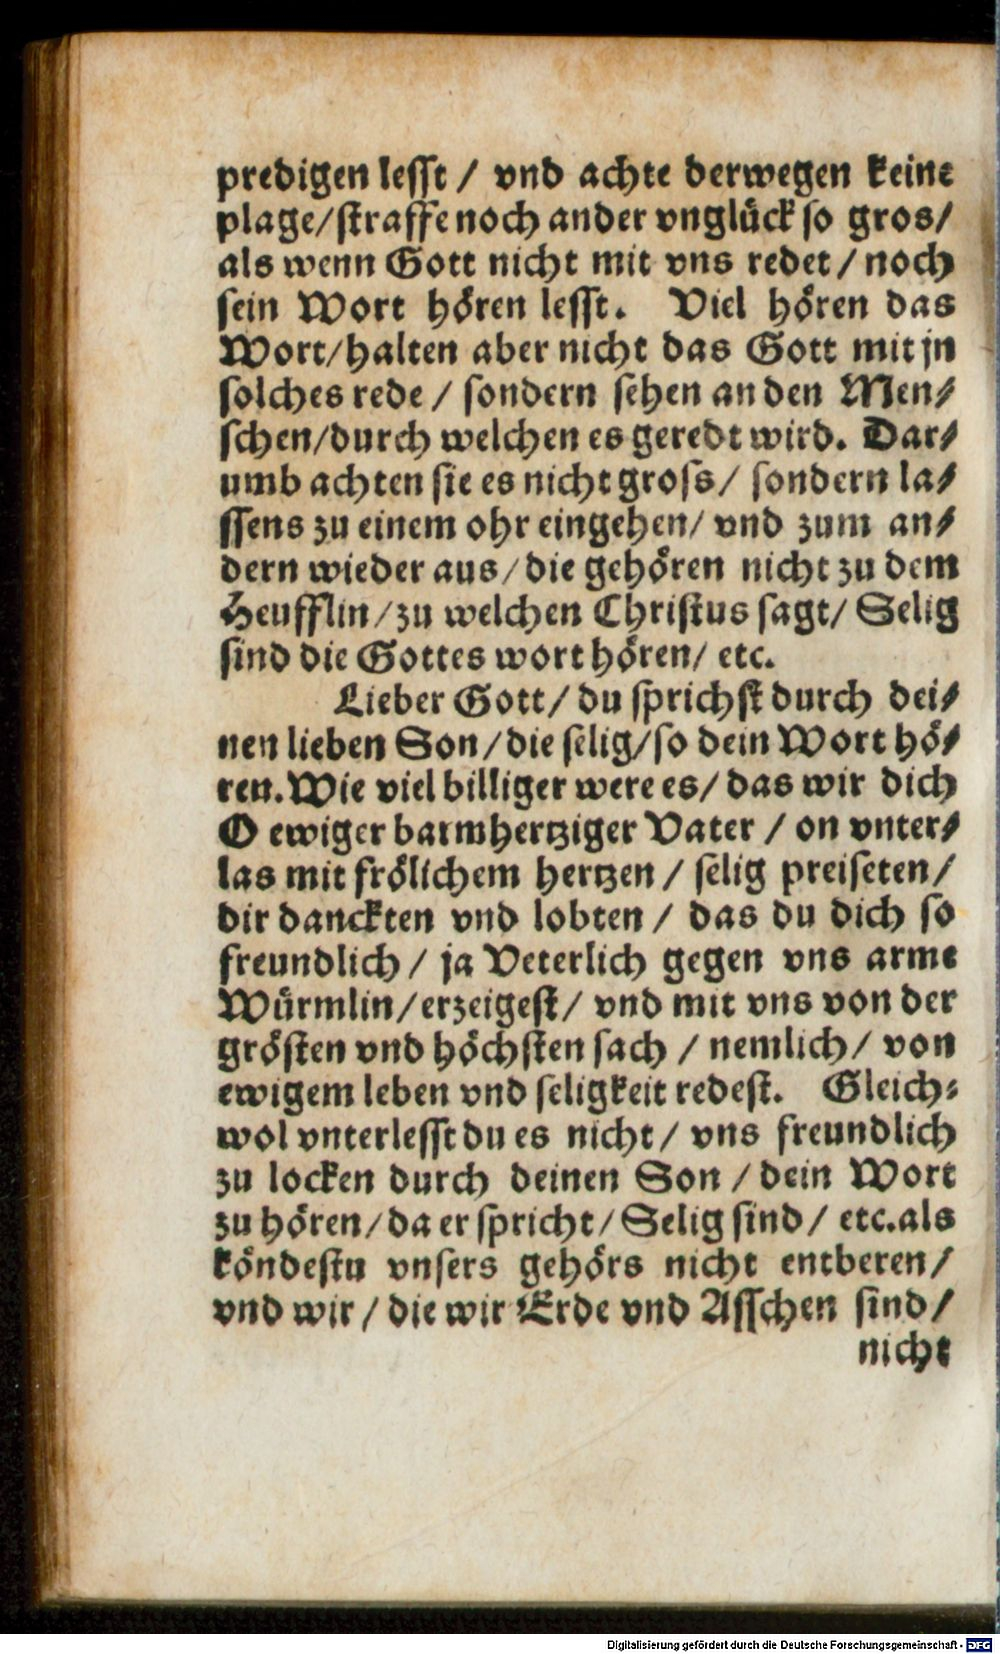 predigen lesst / vnd achte derwegen keine
plage/straffe noch ander vnglück so gros/
als wenn Gott nicht mit vns redet / noch
sein Wort hören lesst. Viel hören das
Wort/halten aber nicht das Gott mit jn
solches rede / sondern sehen an den Men⸗
schen/durch welchen es geredt wird. Dar⸗
umb achten sie es nicht gross/ sondern la⸗
ssens zu einem ohr eingehen/ vnd zum an⸗
dern wieder aus/die gehören nicht zu dem
Heufflin/zu welchen Christus sagt/ Selig
sind die Gottes wort hören/ etc.
Lieber Gott/ du sprichst durch dei⸗
nen lieben Son/die selig/so dein Wort hö⸗
ren. Wie viel billiger were es/ das wir dich
O ewiger barmhertziger Vater / on vnter⸗
las mit frölichem hertzen / selig preiseten/
dir danckten vnd lobten / das du dich so
freundlich / ja Veterlich gegen vns arme
Würmlin/erzeigest/ vnd mit vns von der
grösten vnd höchsten sach / nemlich/ von
ewigem leben vnd seligkeit redest. Gleich⸗
wol vnterlesst du es nicht/ vns freundlich
zu locken durch deinen Son / dein Wort
zu hören/da er spricht/Selig sind/ etc.als
köndestu vnsers gehörs nicht entberen/
vnd wir / die wir Erde vnd Asschen sind/
nicht
Digitalisierung gefördert durch die Deutsche Forschungsgemeinschaft - DFG